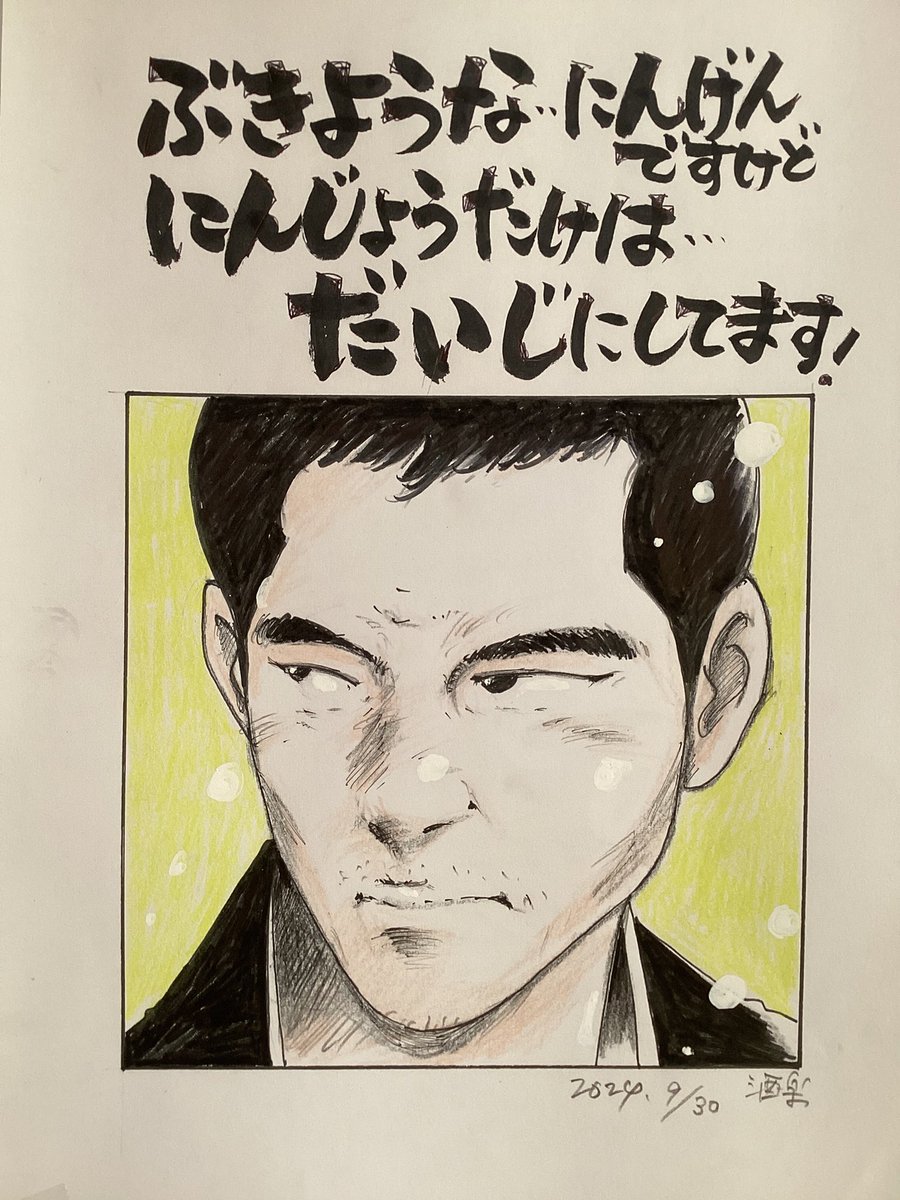 ぶきような…にんげん
ですけど
にんじょうだけは…
だいじにしてます!
2024. 9/30 酒楽